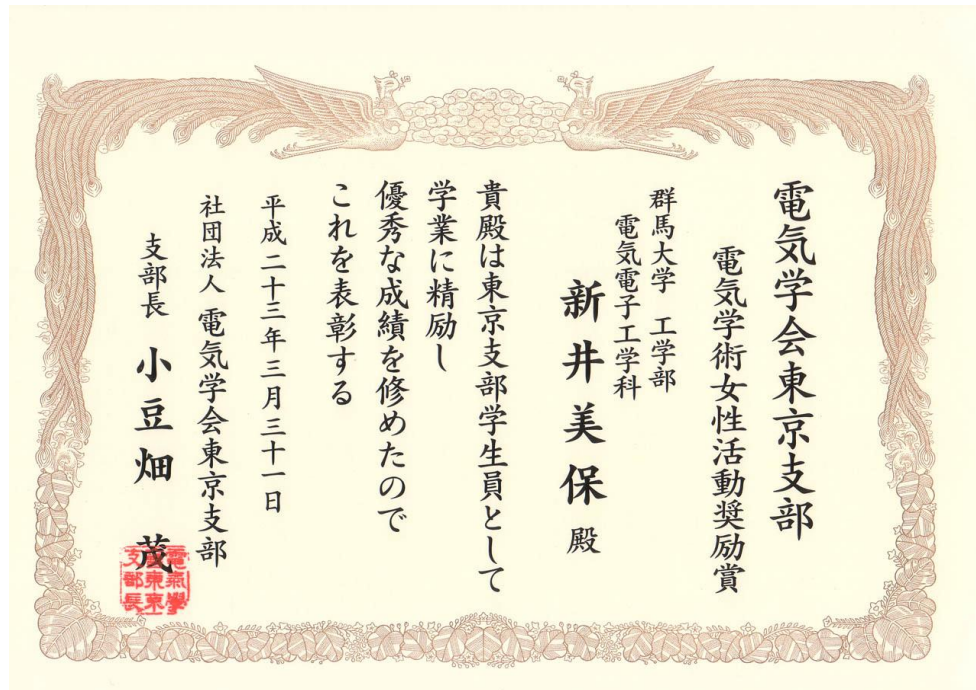 電気学会東京支部
電気学術女性活動奨励賞
群馬大学 工学部
電気電子工学科
新井美保 殿
貴殿は東京支部学生員として
学業に精励し
優秀な成績を修めたので
これを表彰する
平成二十三年三月三十一日
社団法人 電気学会東京支部
支部長 小豆畑 茂